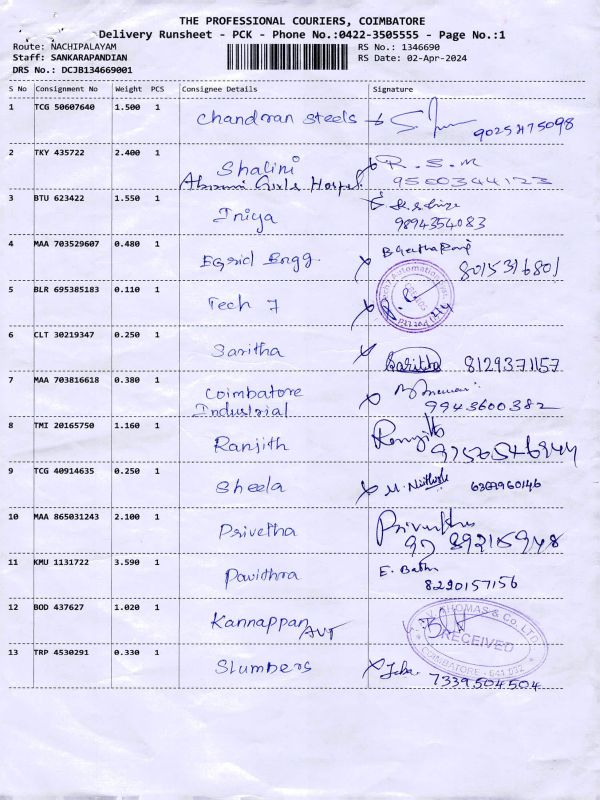 THE PROFESSIONAL COURIERS, COIMBATORE
Delivery Runsheet - PCK - Phone No.:0422-3505555 - Page No.:1
Route: NACHIPALAYAM
RS No.: 1346690
Staff: SANKARAPANDIAN
RS Date: 02-Apr-2024
DRS No.: DCJB134669001
S No Consignment No Weight PCS Consignee Details Signature
1 TCG 50607640 1.500 1 Chandran Steels
2 TKY 435722 2.400 1 Shalini R.S.M
Girls 9500344123
3 BTU 623422 1.550 1 Iniya
9894354083
4 MAA 703529607 0.480 1 EGrid Engg.
8015316801
5 BLR 695385183 0.110 1 Tech 7
6 CLT 30219347 0.250 1 Saritha Saritha 8129371157
7 MAA 703816618 0.380 1 Coimbatore
Industrial 9943600382
8 TMI 20165750 1.160 1 Ranjith Ranjith
9 TCG 40914635 0.250 1 Sheela
10 MAA 865031243 2.100 1 Privetha
11 KMU 1131722 3.590 1 Pavithra E.
8220157156
12 BOD 437627 1.020 1 Kannappan
AVT
THOMAS & Co. LTD.
RECEIVED
COIMBATORE - 641 032
13 TRP 4530291 0.330 1 Slumbers
7339504504